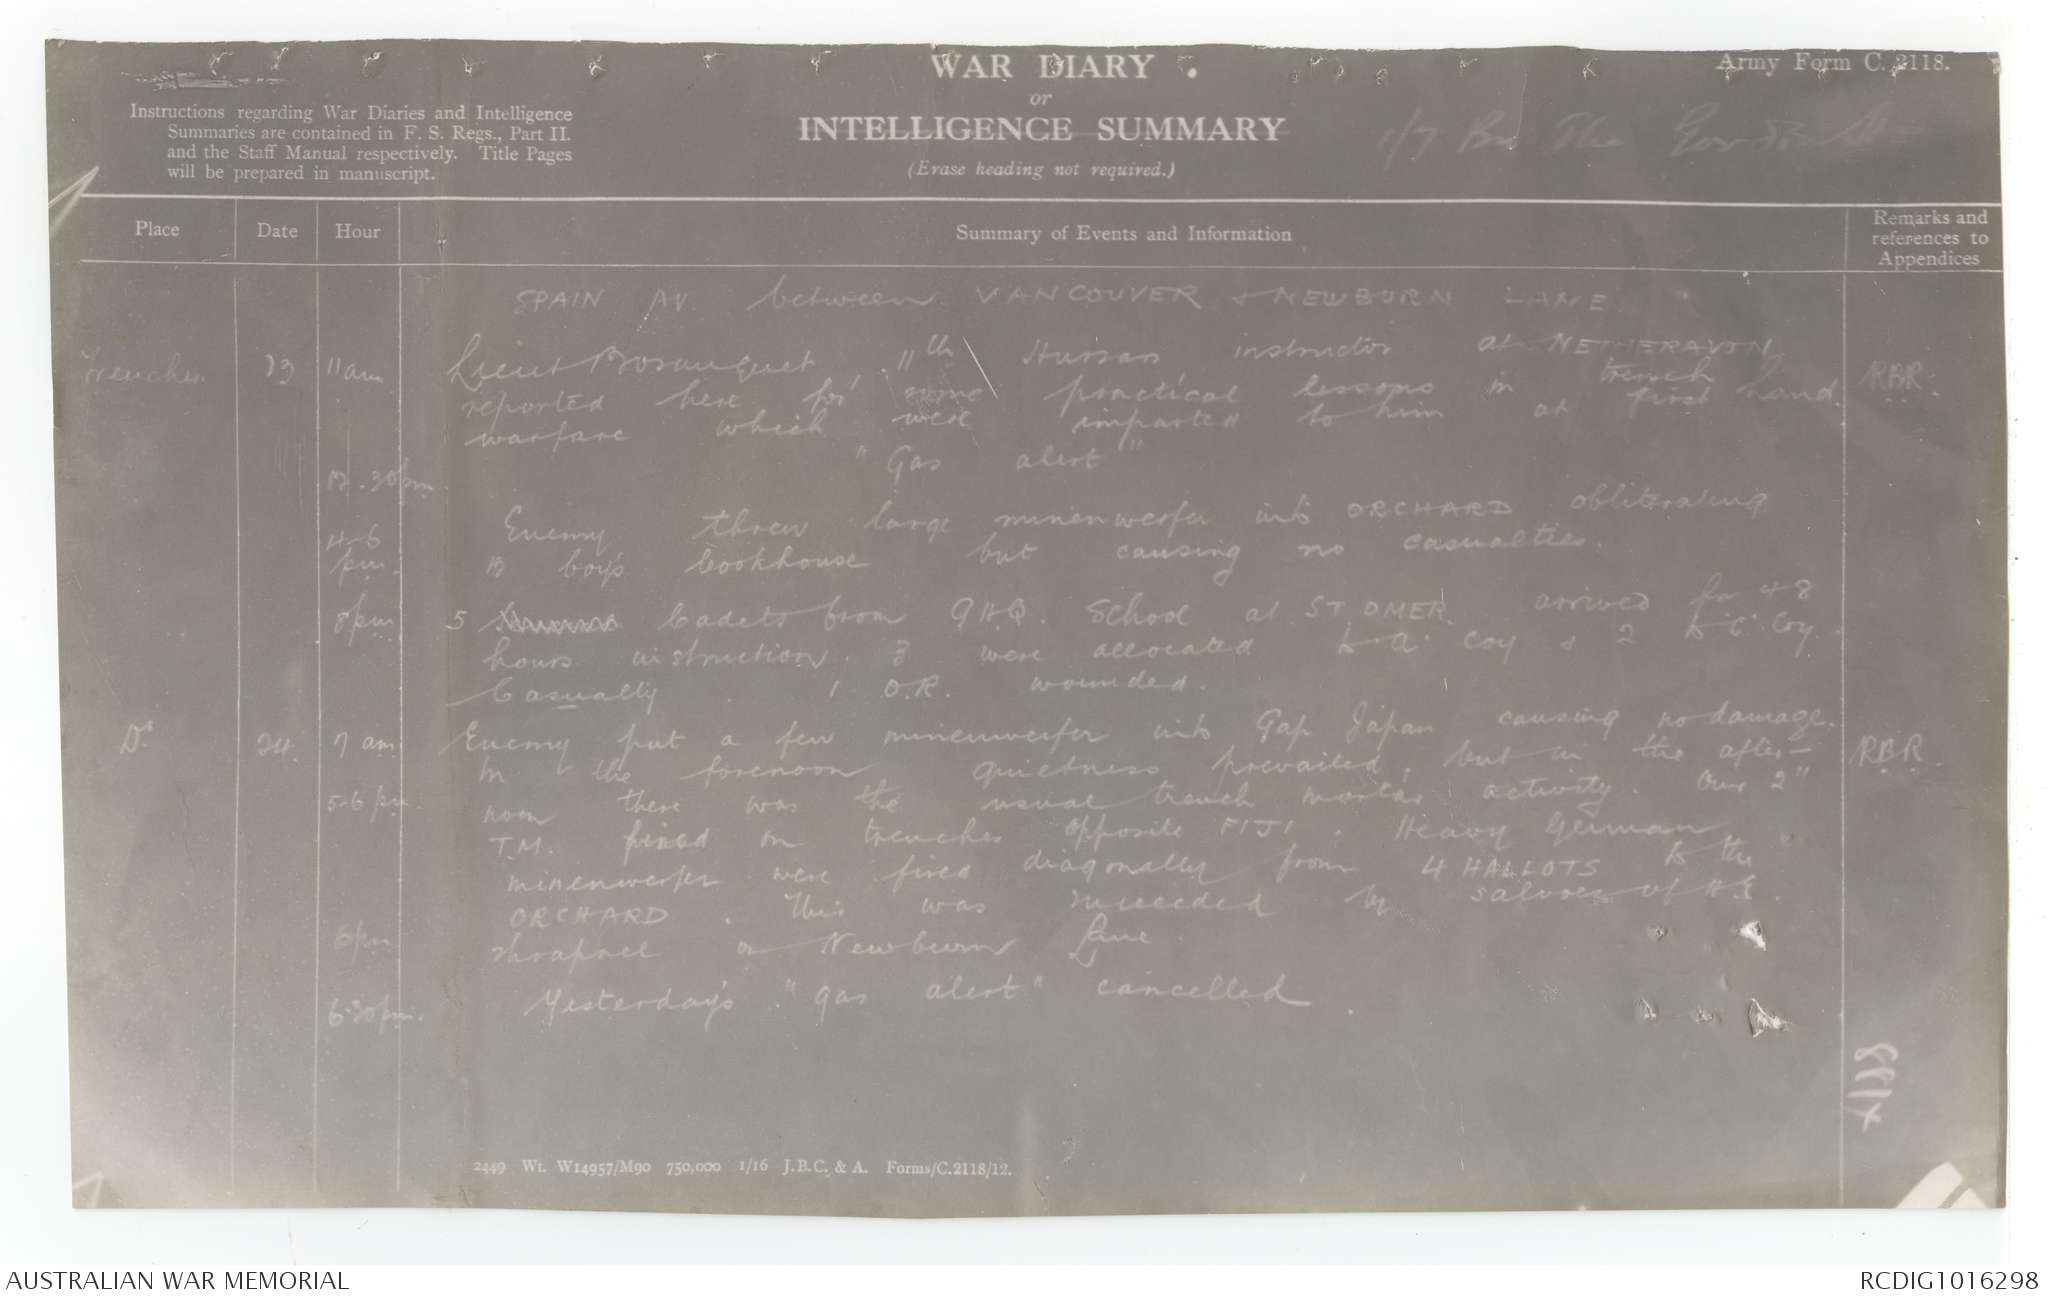 WAR DIARY.
or
INTELLIGENCE SUMMARY
(Erase heading not required.)
Army Form C. 2118.
Instructions regarding War Diaries and Intelligence
Summaries are contained in F. S. Regs., Part II.
and the Staff Manual respectively. Title Pages
will be prepared in manuscript.
1/7 Bn The Gordon
Place Date Hour Summary of Events and Information Remarks and references to Appendices
SPAIN AV. between VANCOUVER & NEWBURN LANE.
Trenches 23 11 am Lieut Bosanquet, 11th Hussars instructor at NETHERAVON RBR.
reported here for some practical lessons in trench
warfare which were imparted to him at first hand.
12.30pm "Gas alert"
4-6 pm. Enemy threw large minenwerfer into ORCHARD obliterating
B Coy's Cookhouse but causing no casualties.
8pm 5 Cadets from GHQ. School at ST OMER. arrived for 48
hours instruction. 3 were allocated to A coy & 2 to C Coy.
Casualty. 1 O.R. wounded.
Do 24. 7 am Enemy put a few minenwerfer into Gap Japan causing no damage. RBR.
In the forenoon quietness prevailed, but in the after-
5-6 pm. noon there was the usual trench mortar activity. Our 2"
T.M. fired on trenches opposite FIJI. Heavy German
minenwerfer were fired diagonally from 4 HALLOTS to the
ORCHARD. This was succeeded by salvoes of H.E.
6pm shrapnel on Newburn Lane.
6.30pm. Yesterday's "gas alert" cancelled.
2449 Wt. W14957/M90 750,000 1/16 J.B.C. & A. Forms/C.2118/12.
AUSTRALIAN WAR MEMORIAL
RCDIG1016298